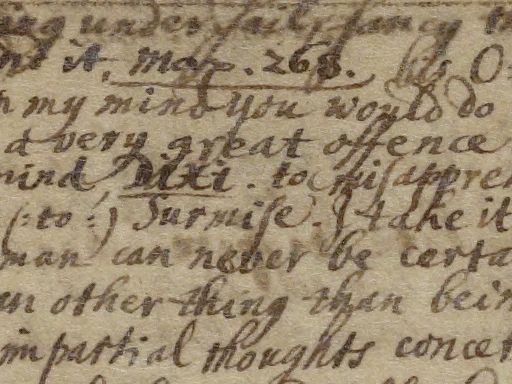 under
nd it, mss. 268. his O
my mind you would do
a very great offence
mind, Dixi. to misappreh
(:to:) Surmise. I take it
man can never be certa
an other thing than bein
impartial thoughts concer